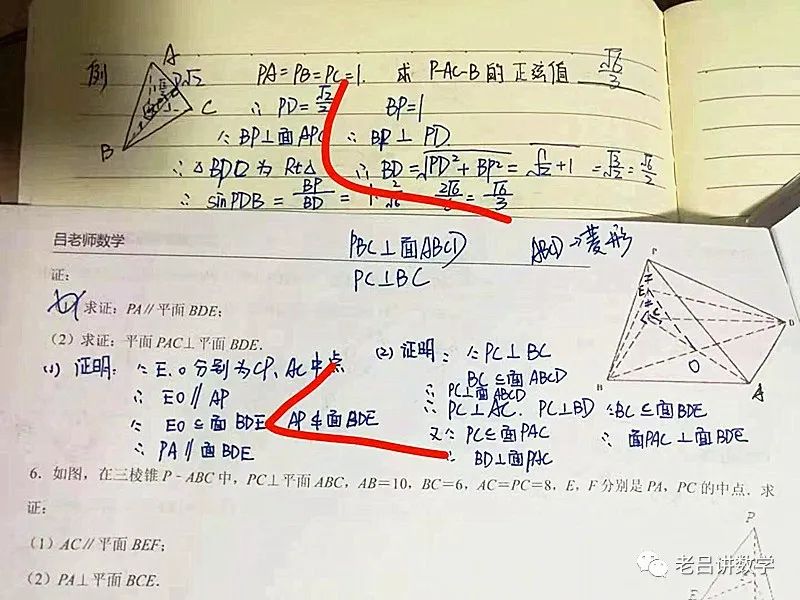 例
A
D √2
C
B
PA=PB=PC=1. 求 P-AC-B的正弦值 √6/3
∴ PD=√2/2 BP=1
∵ BP⊥面APC ∴ BP⊥PD
∴ △BPD为Rt△ ∴ BD=√PD²+BP² = +1 = = √6/2
∴ sinPDB = BP/BD = 1· 2/√6 = √6/3
吕老师数学
PBC⊥面ABCD ABCD→菱形
证:
PC⊥BC
(1)求证: PA∥平面BDE;
(2)求证: 平面PAC⊥平面BDE.
P
E
D
B
O
A
(1) 证明: ∵ E.O分别为CP、AC中点
∴ EO∥AP
∵ EO⊆面BDE AP⊄面BDE
∴ PA∥面BDE
(2) 证明: ∵ PC⊥BC
BC⊆面ABCD
∴ PC⊥面ABCD
∴ PC⊥AC. PC⊥BD
又∵ PC⊆面PAC
∴ BD⊥面PAC
∵BC⊆面BDE
∴ 面PAC⊥面BDE
6. 如图, 在三棱锥P-ABC中, PC⊥平面ABC, AB=10, BC=6, AC=PC=8, E, F分别是PA, PC的中点. 求
证:
(1) AC∥平面BEF;
(2) PA⊥平面BCE.
P
E
老吕讲数学